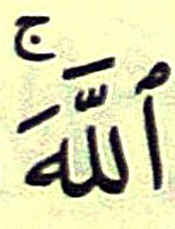 ٱللَّهَ ۚ